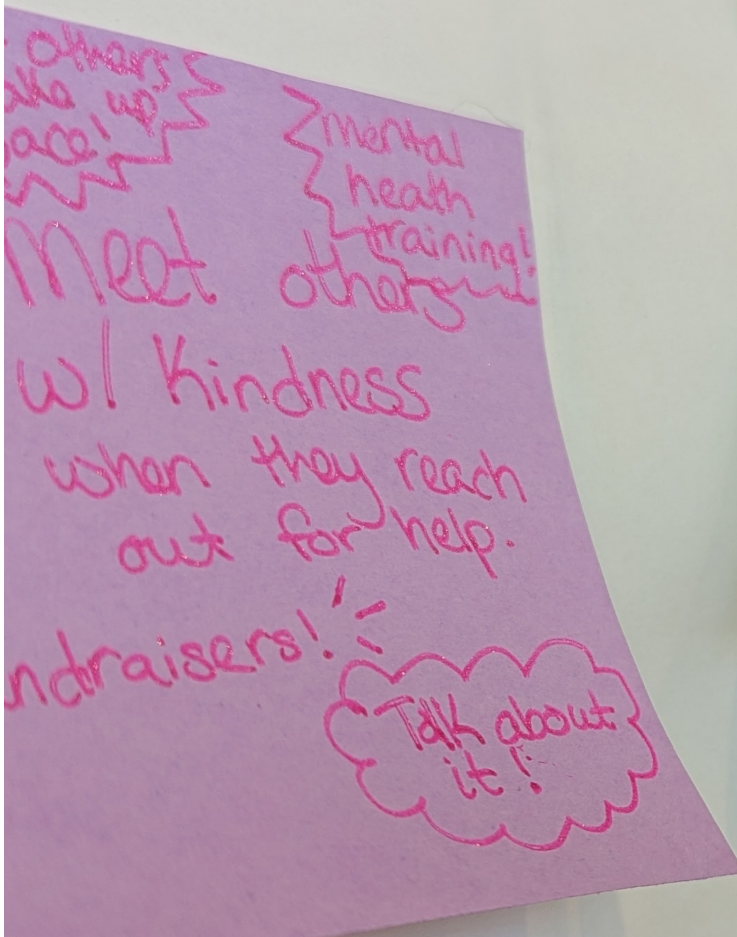 others
up
mental
heath
training!
Meet others
w/ Kindness
when they reach
out for help.
ndraisers!
Talk about
it!